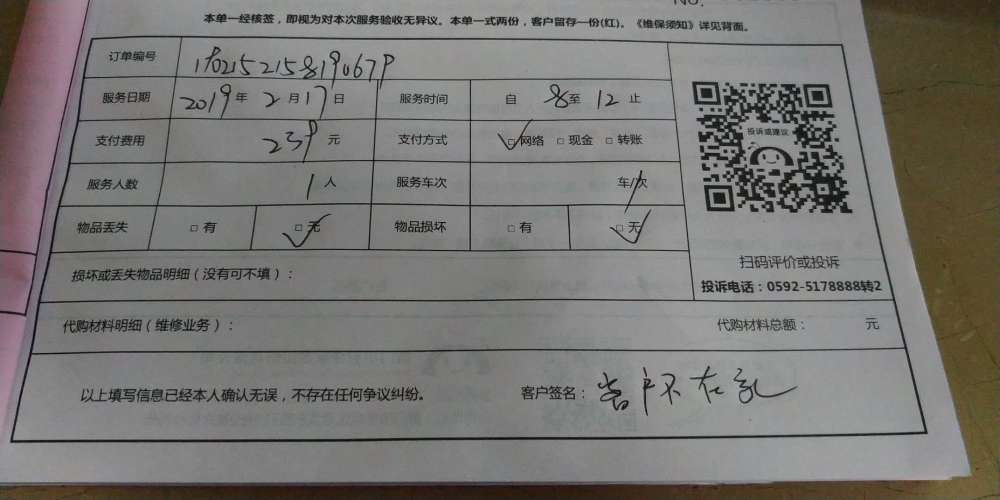 No.
本单一经核签，即视为对本次服务验收无异议。本单一式两份，客户留存一份(红)。《维保须知》详见背面。
订单编号
服务日期 2019年 2月17日 服务时间 自 8至 12 止
支付费用 239 元 支付方式 □网络 □现金 □转账
服务人数 1人 服务车次 车/次
物品丢失 □有 □无 物品损坏 □有 □无
投诉或建议
扫码评价或投诉
投诉电话：0592-5178888转2
损坏或丢失物品明细（没有可不填）：
代购材料明细（维修业务）： 代购材料总额： 元
以上填写信息已经本人确认无误，不存在任何争议纠纷。 客户签名：客户不在家